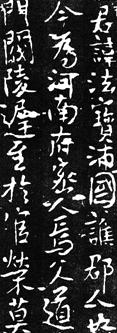 君諱法寶沛國譙郡人也
今為河南府密人焉人道
門閥陵遲至於官榮莫